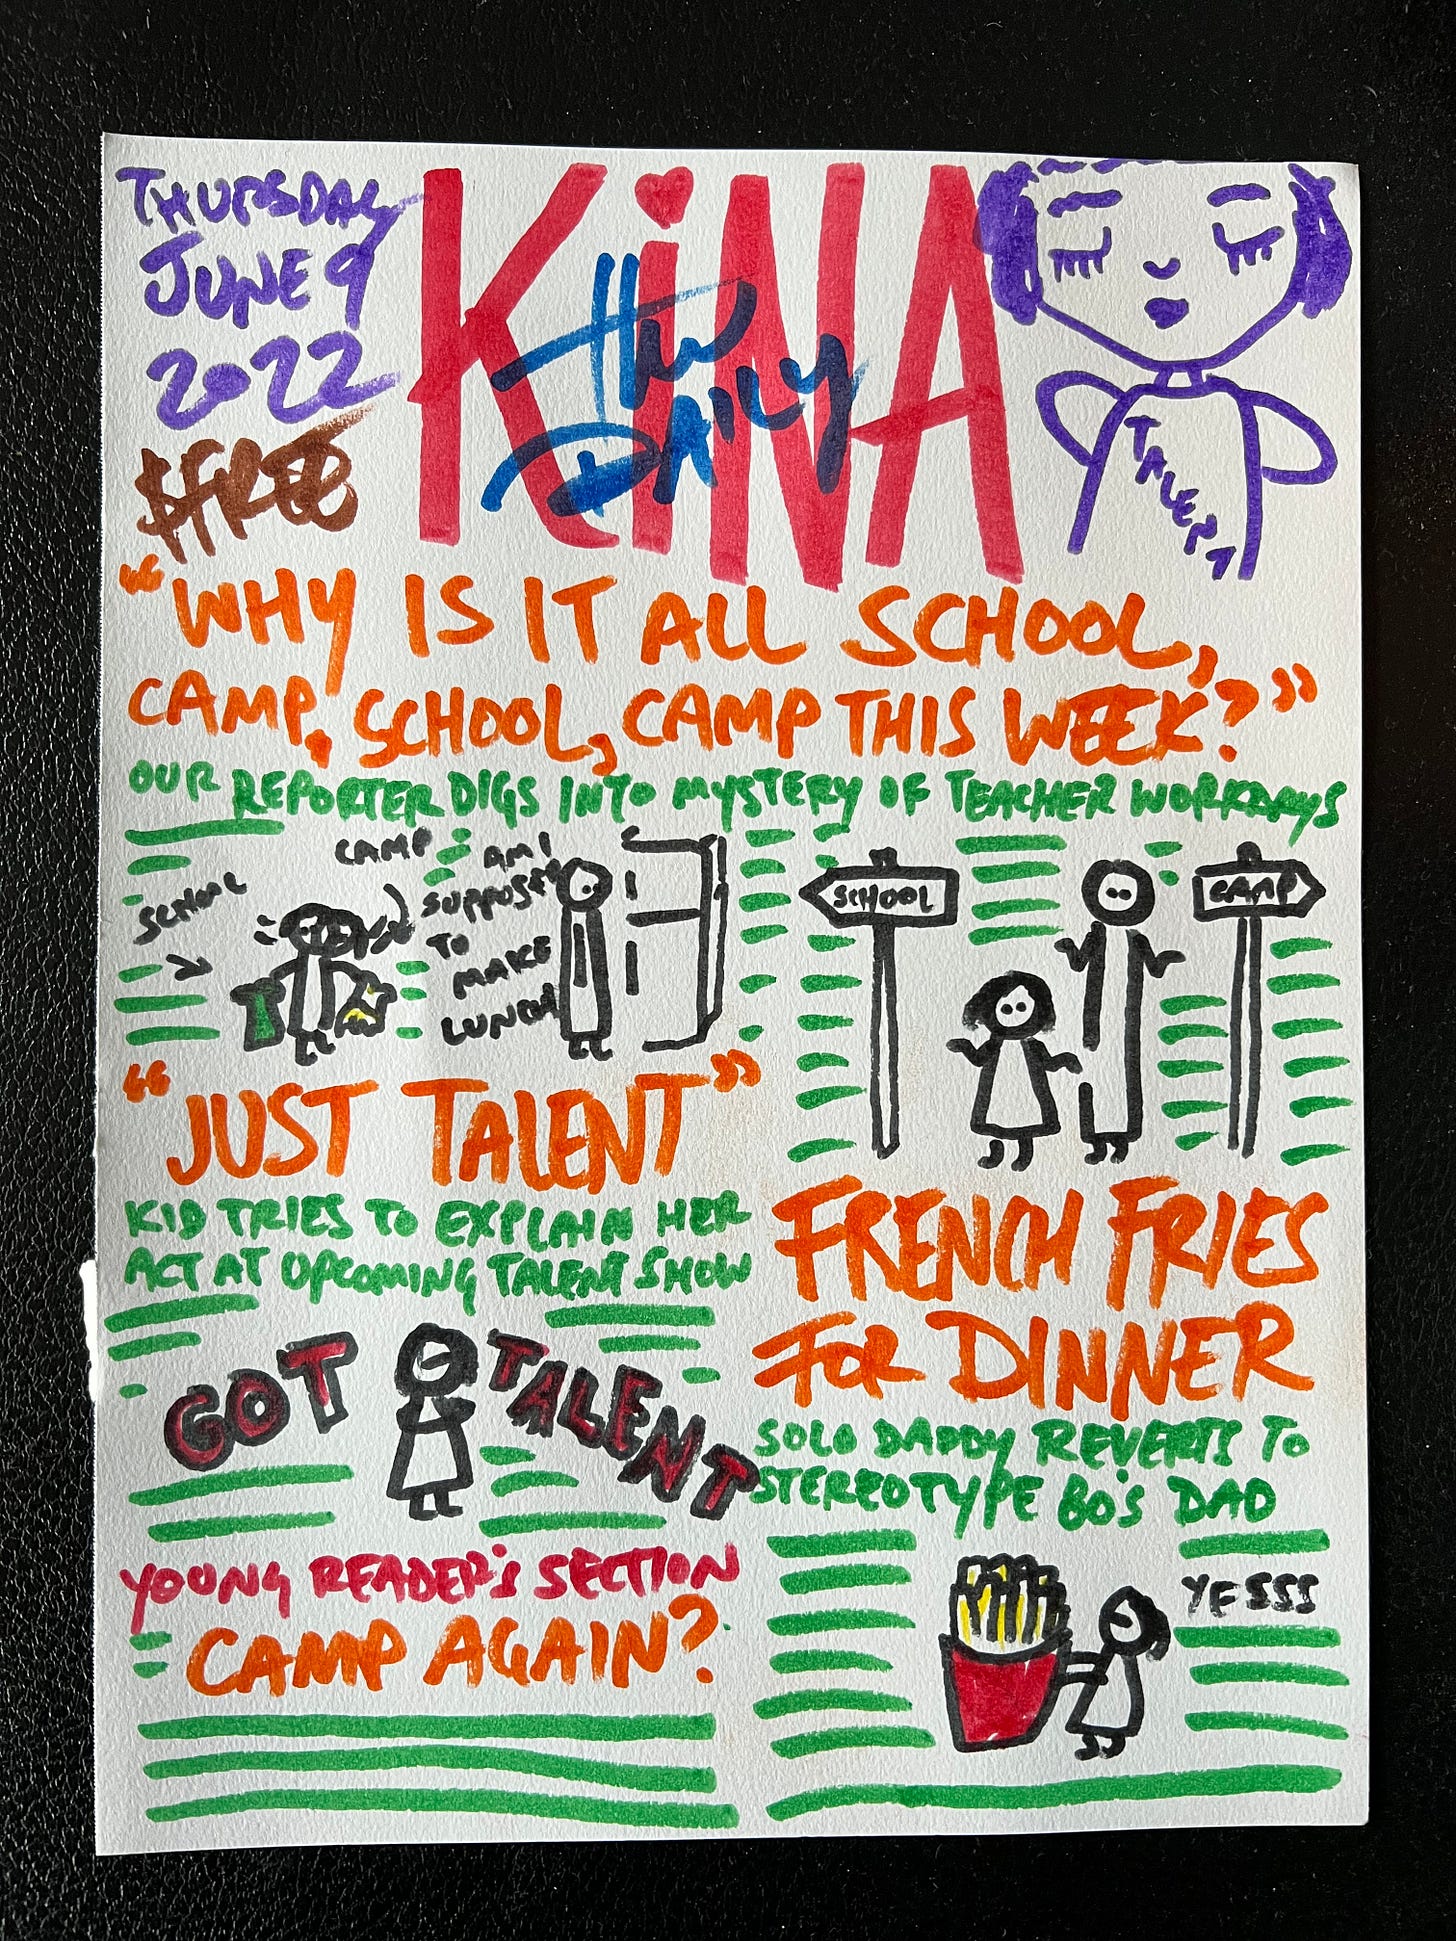 THURSDAY
JUNE 9
2022
$FREE
KiNA
THE
DAILY
TALENT
"WHY IS IT ALL SCHOOL,
CAMP, SCHOOL, CAMP THIS WEEK?"
OUR REPORTER DIGS INTO MYSTERY OF TEACHER WORKDAYS
SCHOOL
CAMP
AM I
SUPPOSED
TO
MAKE
LUNCH
SCHOOL
CAMP
"JUST TALENT"
KID TRIES TO EXPLAIN HER
ACT AT UPCOMING TALENT SHOW
GOT TALENT
YOUNG READER'S SECTION
CAMP AGAIN?
FRENCH FRIES
FOR DINNER
SOLO DADDY REVERTS TO
STEREOTYPE 60'S DAD
YESSS